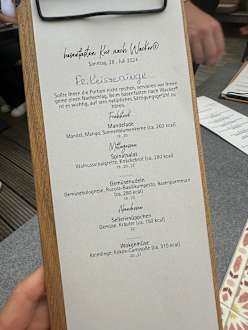 basenfasten Kur nach Wacker®
Sonntag, 28. Juli 2024
Sollte Ihnen die Portion nicht reichen, servieren wir Ihnen
gerne einen Nachschlag. Beim basenfasten nach Wacker®
ist es wichtig, auf sein natürliches Sättigungsgefühl zu
hören.
Frühstück
Mandelade
Mandel, Mango, Sonnenblumenkerne (ca. 260 kcal)
Mittagessen
Spinatsalat
Walnussvinaigrette, Knäckebrot (ca. 280 kcal)
Gemüsenudeln
Gemüsebolognese, Rucola-Basilikumpesto, Basenparmesan
(ca. 280 kcal)
Abendessen
Selleriesüppchen
Gemüse, Kräuter (ca. 150 kcal)
Wokgemüse
Keimlinge, Kokos-Currysoße (ca. 310 kcal)